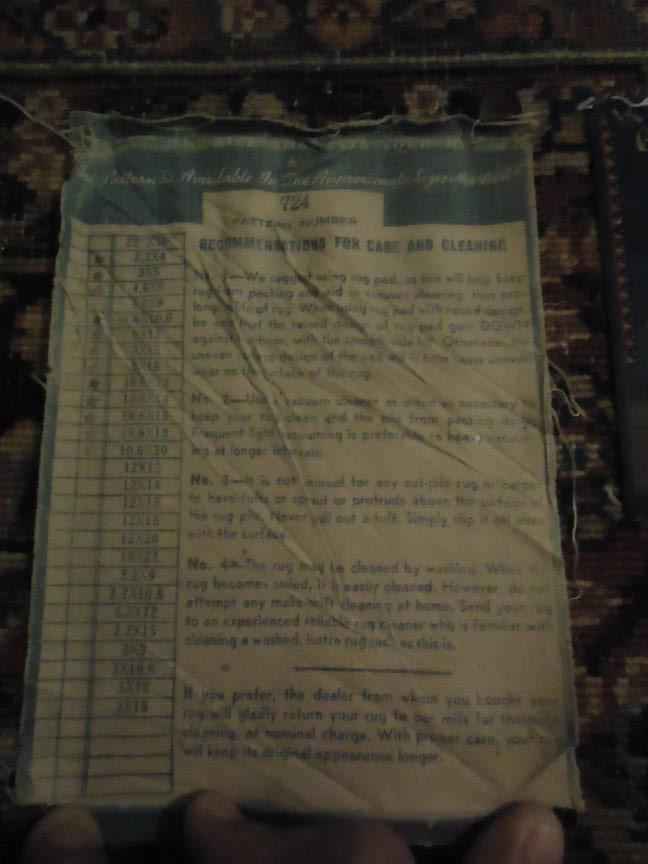 Pattern Is Available In The Approximate Sizes Marked
724
PATTERN NUMBER
RECOMMENDATIONS FOR CARE AND CLEANING
2.2X4
3X5
4.6X6
10.6X14
10.6X16
10.6X18
10.6X20
12X12
12X14
12X16
12X18
12X20
18X22
2.2X9
2.2X10.6
2.2X12
2.2X15
3X9
3X10.6
3X12
3X15
No. 1—We suggest using rug pad, as this will help keep
rug from packing and aid in vacuum cleaning, thus pro-
longing life of rug. When using rug pad with raised design,
be sure that the raised design of rug pad goes DOWN
against the floor, with the smooth side UP. Otherwise, the
uneven surface design of the pad will in time cause uneven
wear on the surface of the rug.
No. 2—Use a vacuum cleaner as often as necessary to
keep your rug clean and the pile from packing down.
Frequent light vacuuming is preferable to heavy vacuum-
ing at longer intervals.
No. 3—It is not unusual for any cut-pile rug or carpet
to have tufts or sprout or protrude above the surface of
the rug pile. Never pull out a tuft. Simply clip it off even
with the surface.
No. 4—The rug may be cleaned by washing. When the
rug becomes soiled, it is easily cleaned. However, do not
attempt any make-shift cleaning at home. Send your rug
to an experienced reliable rug cleaner who is familiar with
cleaning a washed, lustre rug such as this is.
If you prefer, the dealer from whom you bought your
rug will gladly return your rug to our mills for thorough
cleaning, at nominal charge. With proper care, your rug
will keep its original appearance longer.